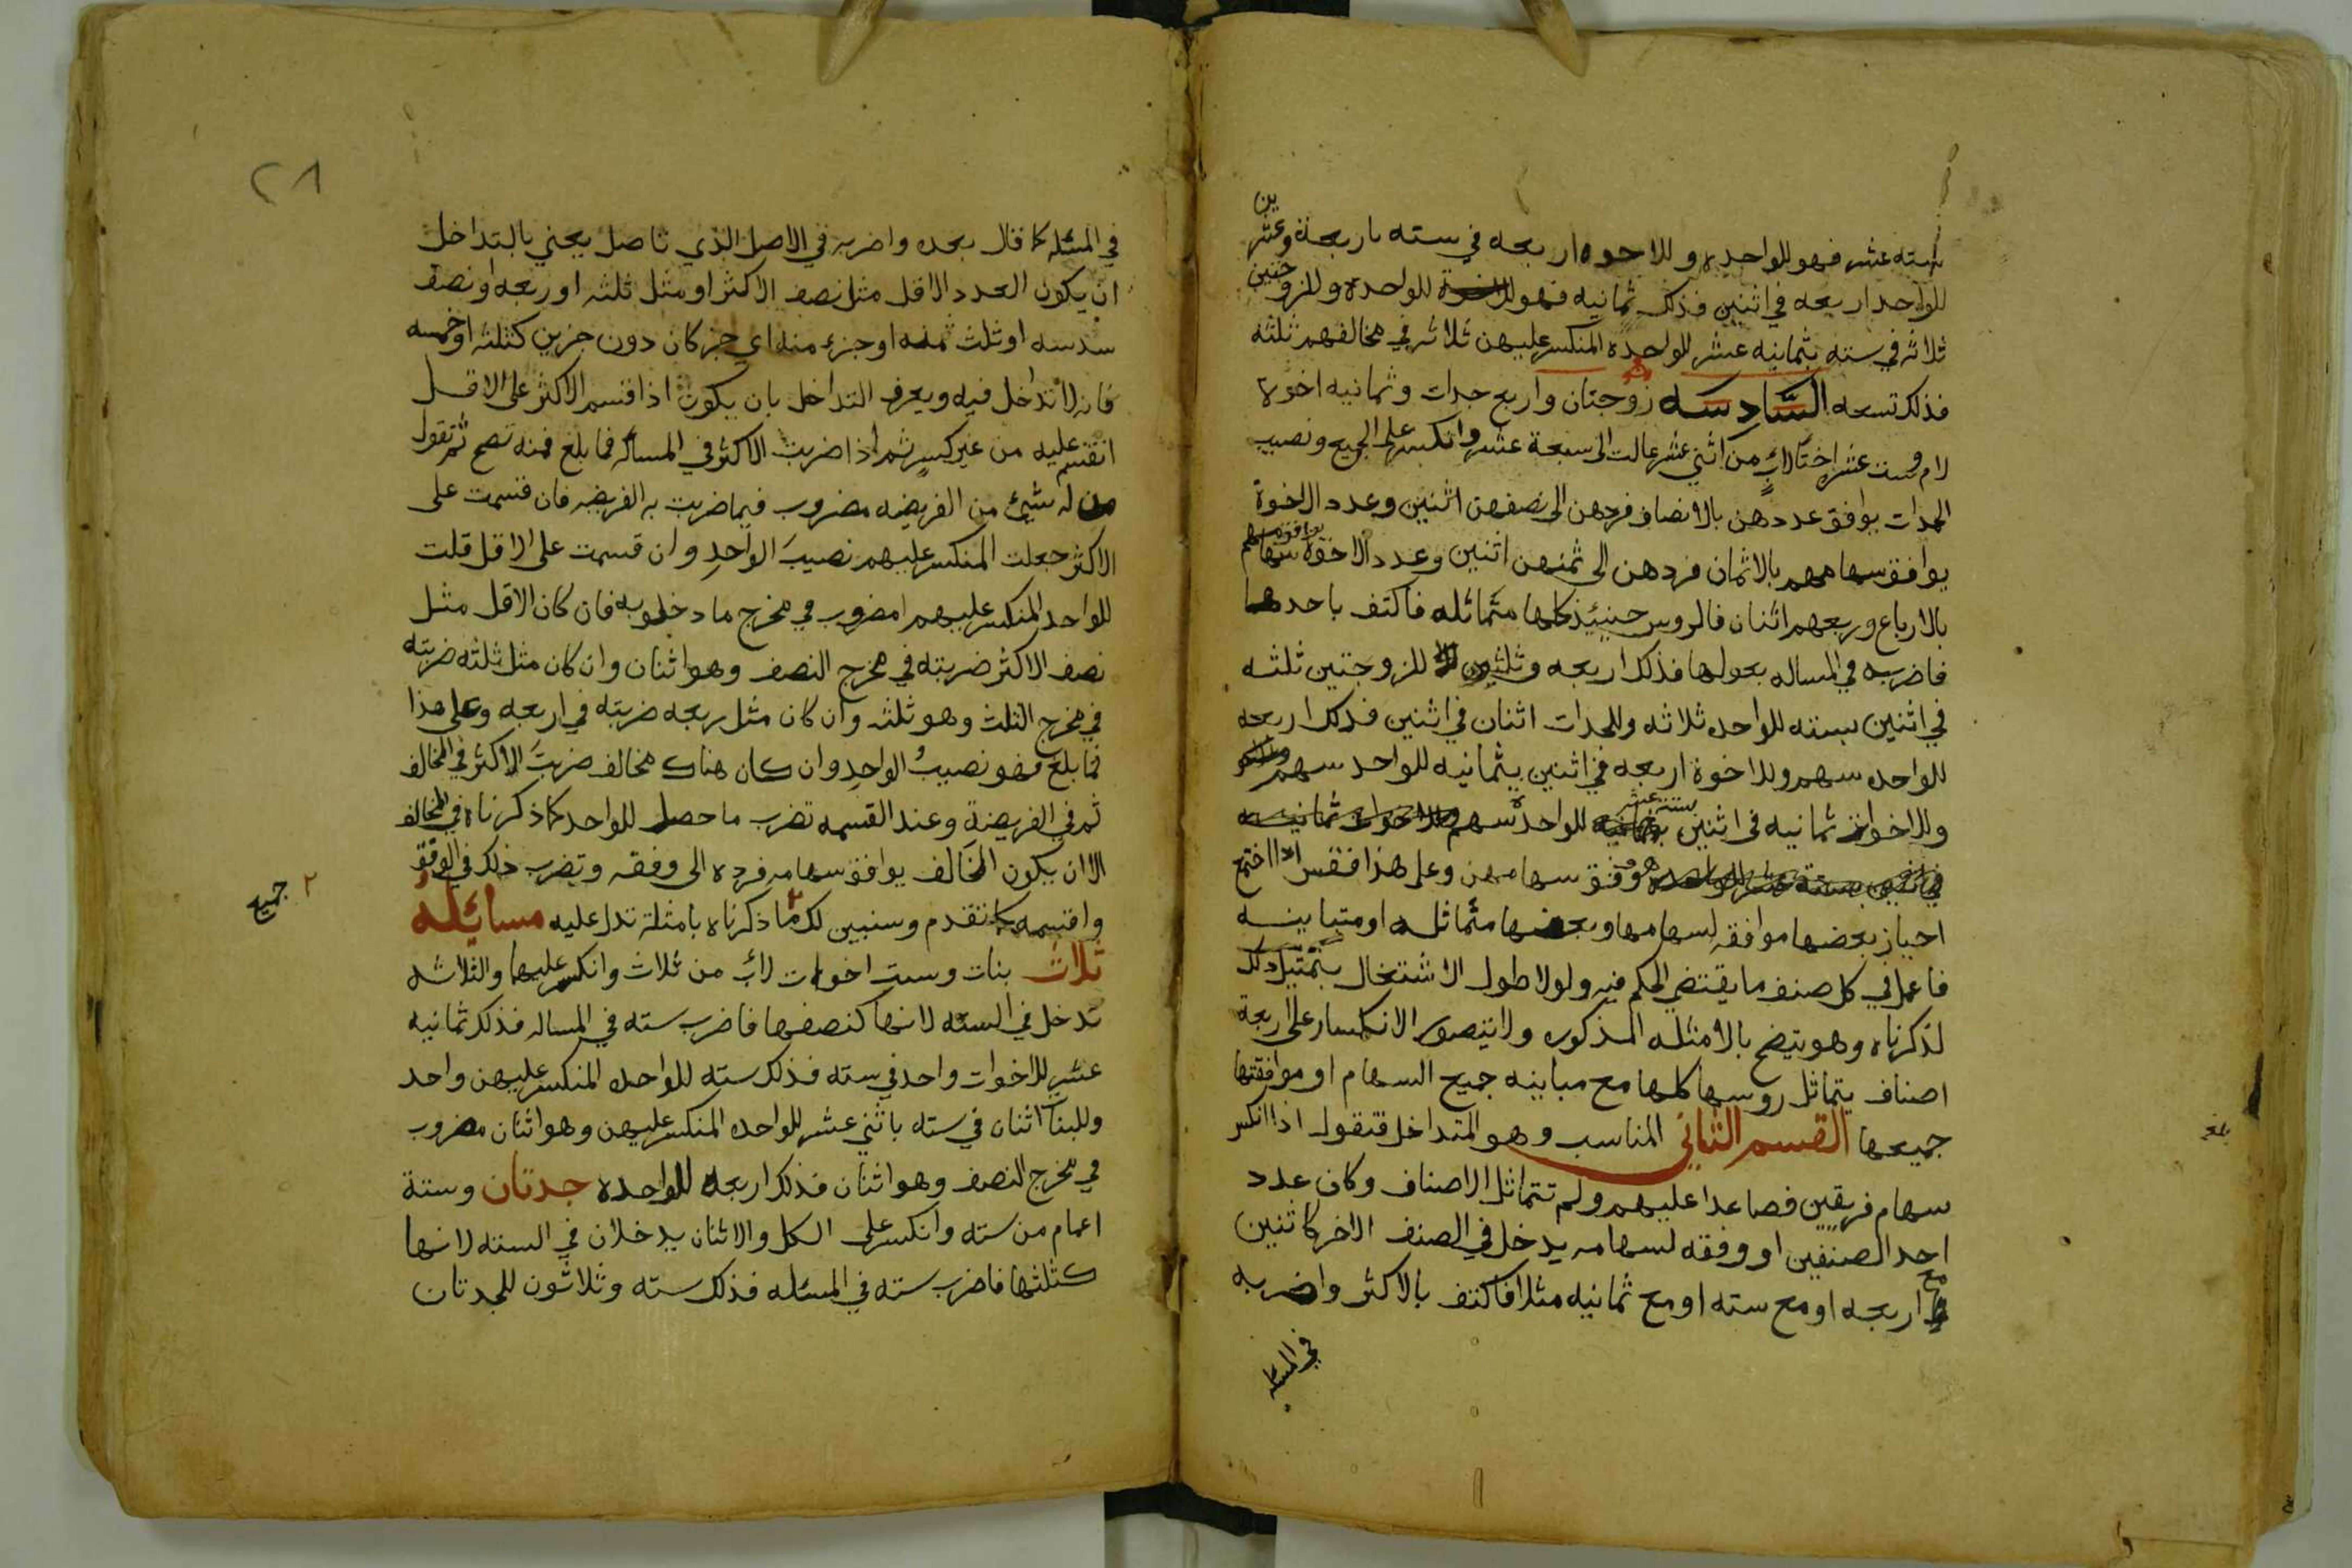 سته عشر فهو للواحده وللاخوه اربعه في سته باربعة وعشرين
للواحد اربعه في اثنين فذلك ثمانيه فهو للواحدة وللزوجتين
ثلاثه في سته بثمانيه عشر للواحده المنكسر عليهن ثلاثه في مخالفهم ثلثه
فذلك تسعه السادسه زوجتان واربع جدات وثمانيه اخوة
لام وست عشر اختا لابٍ من اثني عشر عالت الى سبعة عشر وانكسر على الجميع ونصيب
الجدات يوافق عددهن بالانصاف فردهن الى نصفهن اثنين وعدد الاخوة
يوافق سهامهم بالاثمان فردهن الى ثمنهن اثنين وعدد الاخوة يوافق سهامهم
بالارباع وربعهم اثنان فالروس حينيئذ كلها متماثله فاكتف باحدها
فاضربه في المساله بعولها فذلك اربعه وثلثون للزوجتين ثلثه
في اثنين بسته للواحده ثلاثه وللجدات اثنان في اثنين فذلك اربعه
للواحده سهم وللاخوة اربعه في اثنين بثمانيه للواحد سهم
وللاخوات ثمانيه في اثنين بستة عشر للواحدة سهم
هو وفق سهامهن وعلى هذا فقس اذا اجتمع
احياز بعضها موافقه لسهامها وبعضها متماثله او متباينه
فاعمل في كل صنف ما يقتضي الحكم فيه ولولا طول الاشتغال بتمثيل ذلك
لذكرناه وهو يتضح بالامثله المذكوره ولا يتصور الانكسار على اربعة
اصناف يتماثل روسها كلها مع مباينه جميع السهام او موافقتها
جميعها القسم الثاني المناسب وهو المتداخل فتقول اذا انكسر
سهام فريقين فصاعدا عليهم ولم تتماثل الاصناف وكان عدد
احد الصنفين او وفقه لسهامه يدخل في الصنف الاخر كاثنين
مع اربعه او مع سته او مع ثمانيه مثلا فاكتف بالاكثر واضربه
في المسئله
بلغ
٢٨
في المسئله كما قال بعده واضربه في الاصل الذي تاصل يعني بالتداخل
ان يكون العدد الاقل مثل نصف الاكثر او مثل ثلثه او ربعه او نصف
سدسه او ثلث ثمنه او جزء منه اي جز كان دون جزين كثلثه او خمسه
فانه لا تداخل فيه ويعرف التداخل بان يكون اذا قسم الاكثر على الاقل
انقسم عليه من غير كسرٍ ثم اذا ضربت الاكثر في المسأله فما بلغ فمنه تصح ثم تقول
من له شيئ من الفريضه مضروب فيما ضربت به الفريضه فان قسمت على
الاكثر جعلت المنكسر عليهم نصيبَ الواحدِ وان قسمت على الاقل قلت
للواحد المنكسر عليهم مضروب في مخرج ما دخلو به فان كان الاقل مثل
نصف الاكثر ضربته في مخرج النصف وهو اثنان وان كان مثل ثلثه ضربته
في مخرج الثلث وهو ثلثه وان كان مثل ربعه ضربته في اربعه وعلى هذا
فما بلغ فهو نصيبُ الواحدِ وان كان هناك مخالف ضربتَ الاكثر في المخالف
ثم في الفريضة وعند القسمه تضرب ما حصل للواحد كما ذكرناه في المخالف
الا ان يكون المخالف يوافق سهامه فرده الى وفقه وتضرب ذلك في الوفق
واقسمه كما تقدم وسنبين لك ما ذكرناه بامثلة تدل عليه مسايله
٢ جميع
ثلاث بنات وست اخوات لابٍ من ثلاث وانكسر عليها والثلاثه
تدخل في السته لانها كنصفها فاضرب سته في المساله فذلك ثمانيه
عشر للاخوات واحد في سته فذلك سته للواحده المنكسر عليهن واحد
وللبنات اثنان في سته باثني عشر للواحده المنكسر عليهن وهو اثنان مضروب
في مخرج النصف وهو اثنان فذلك اربعه للواحده جدتان وستة
اعمام من سته وانكسر على الكل والاثنان يدخلان في السته لانها
كثلثها فاضرب سته في المسئله فذلك سته وثلاثون للجدتان